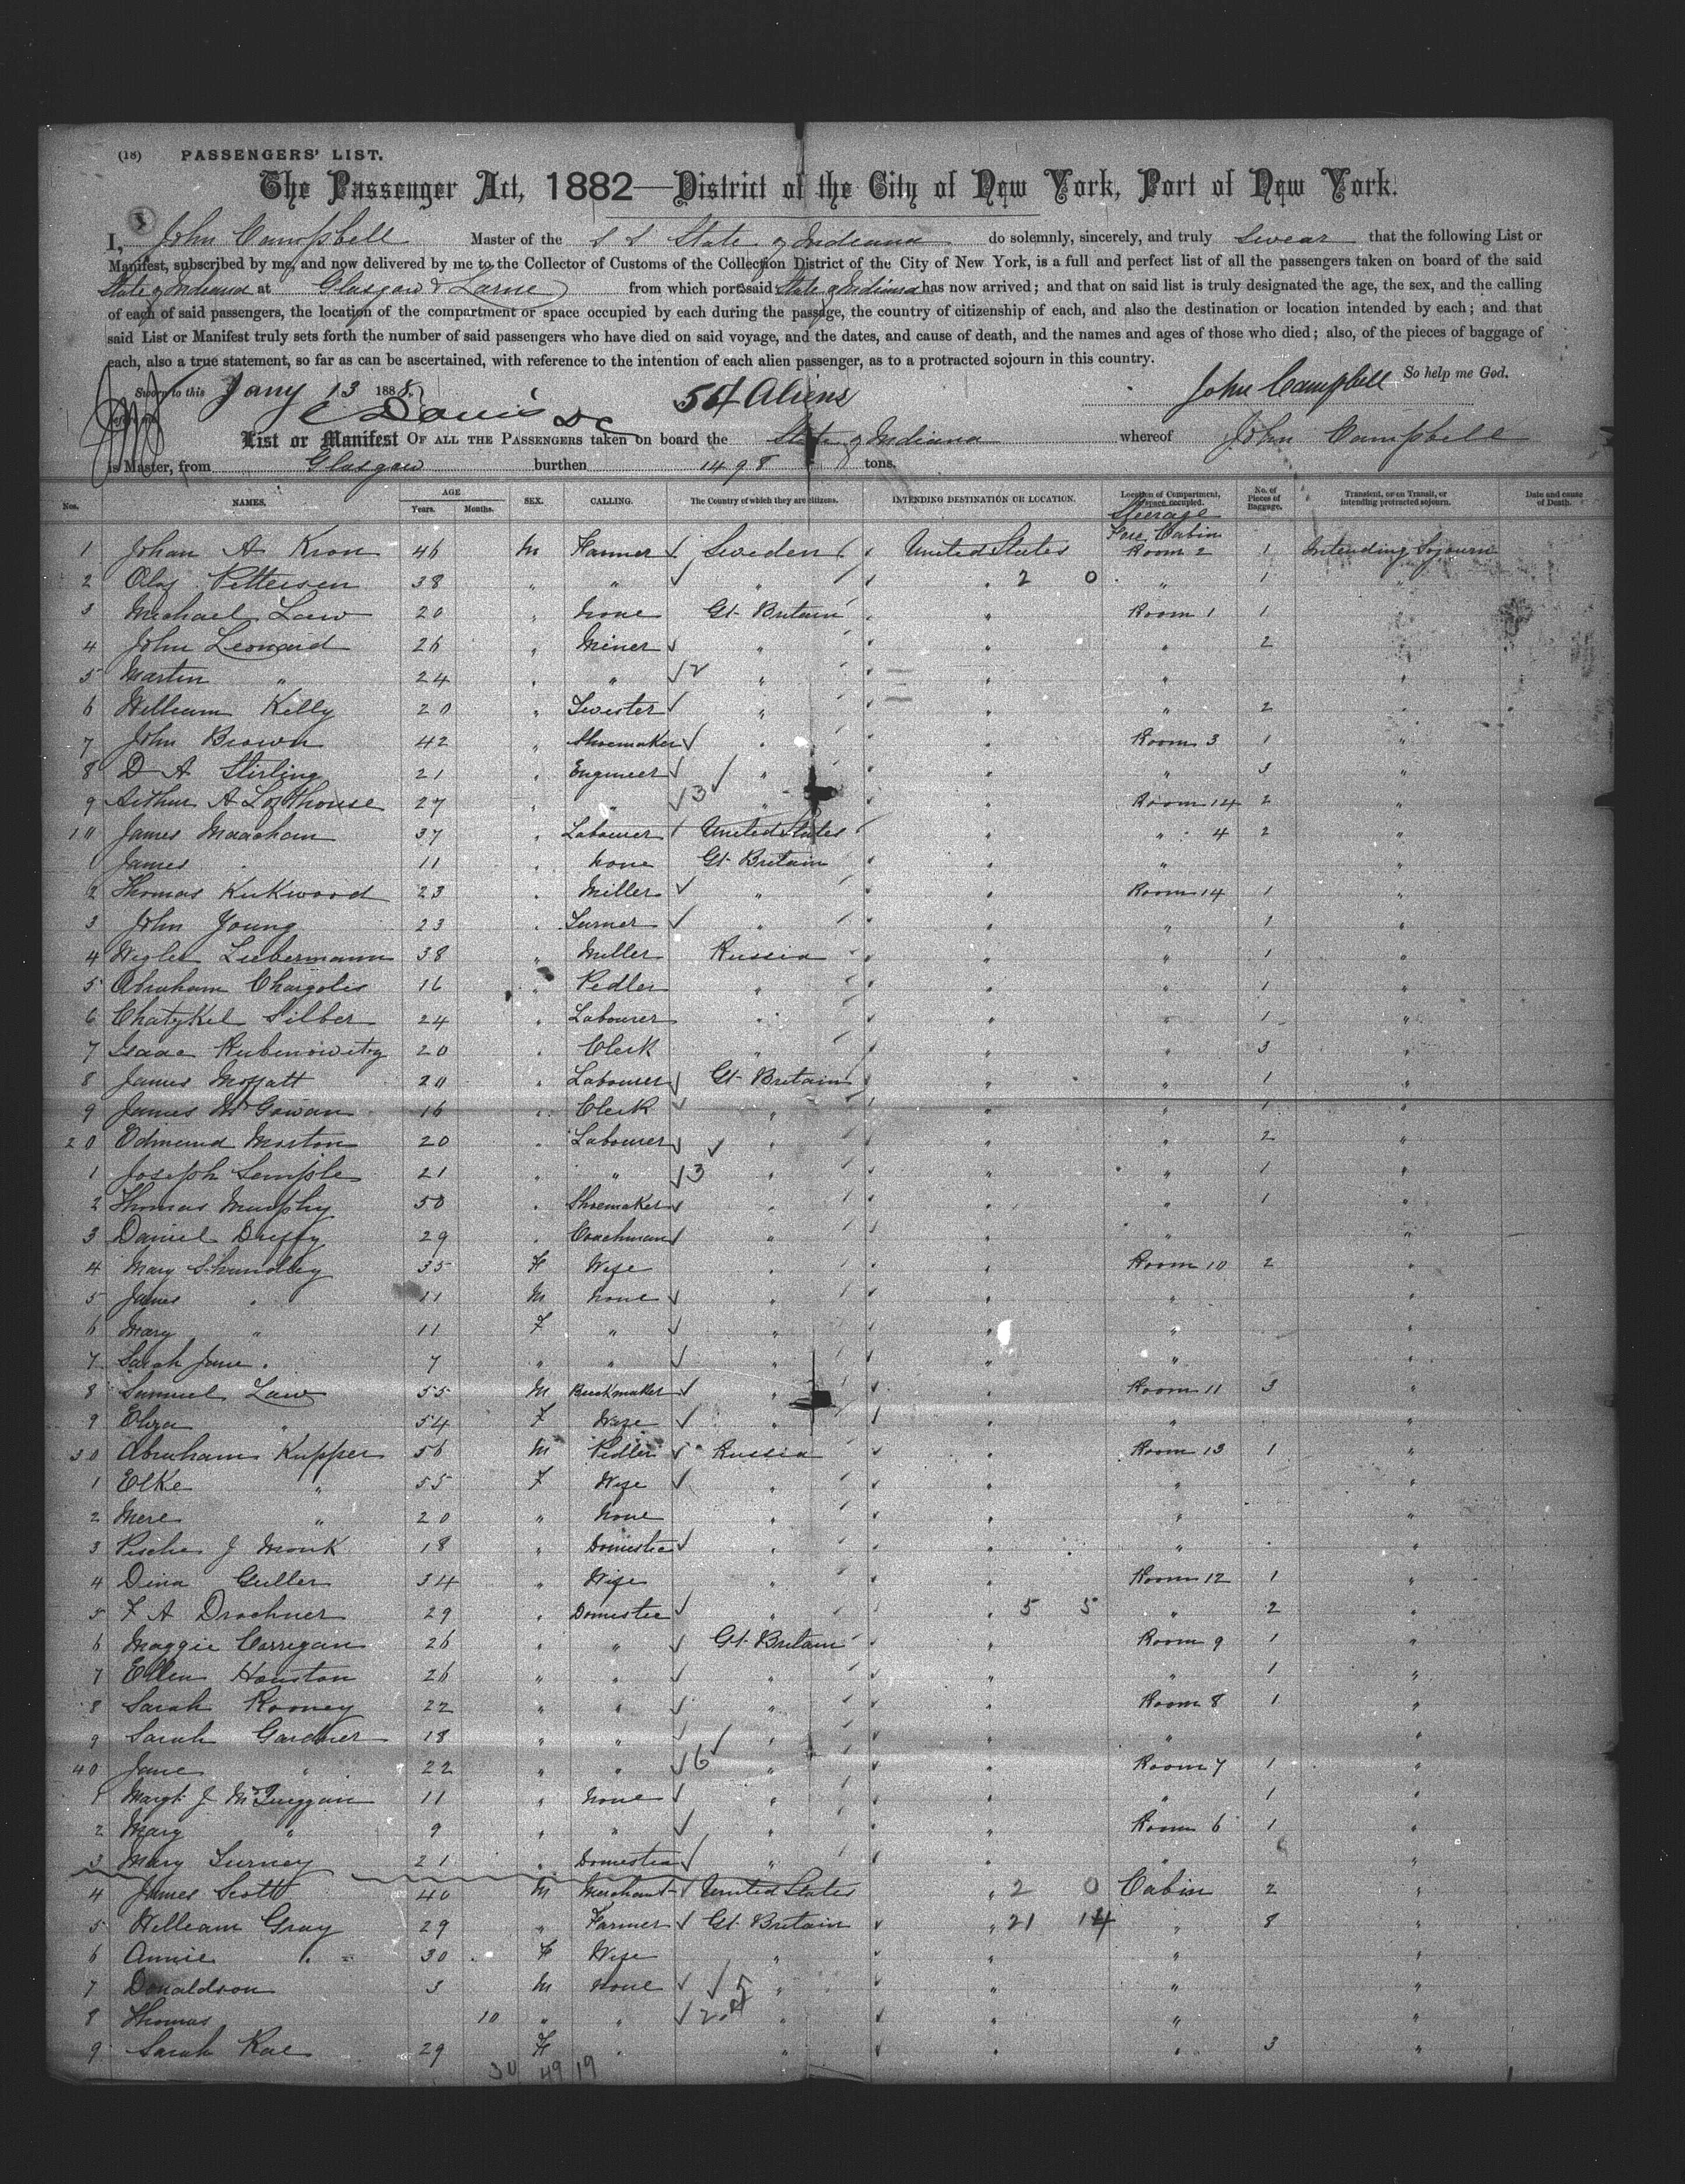 (18) PASSENGERS' LIST.
The Passenger Act, 1882—District of the City of New York, Port of New York.
I, John Campbell Master of the S S State of Indiana do solemnly, sincerely, and truly Swear that the following List or
Manifest, subscribed by me, and now delivered by me to the Collector of Customs of the Collection District of the City of New York, is a full and perfect list of all the passengers taken on board of the said
State of Indiana at Glasgow & Larne from which port said State of Indiana has now arrived; and that on said list is truly designated the age, the sex, and the calling
of each of said passengers, the location of the compartment or space occupied by each during the passage, the country of citizenship of each, and also the destination or location intended by each; and that
said List or Manifest truly sets forth the number of said passengers who have died on said voyage, and the dates, and cause of death, and the names and ages of those who died; also, of the pieces of baggage of
each, also a true statement, so far as can be ascertained, with reference to the intention of each alien passenger, as to a protracted sojourn in this country.
So help me God.
Sworn to this Jany 13 1888 54 Aliens John Campbell
List or Manifest OF ALL THE PASSENGERS taken on board the State of Indiana whereof John Campbell
is Master, from Glasgow burthen 1498 tons.
Nos. NAMES. AGE Years. Months. SEX. CALLING. The Country of which they are citizens. INTENDING DESTINATION OR LOCATION. Location of Compartment, or space occupied. No. of Pieces of Baggage. Transient, or on Transit, or intending protracted sojourn. Date and cause of Death.
Steerage
Fore Cabin
1 Johan A Kron 46 M Farmer Sweden United States Room 2 1 Intending Sojourn
2 Olof Pettersen 38 " " " " 2 0 " 1 "
3 Michael Law 20 " None Gt. Britain " Room 1 1 "
4 John Leonard 26 " Miner " " " 2 "
5 Martin " 24 " " 2 " " " "
6 William Kelly 20 " " " " 2 "
7 John Brown 42 " Shoemaker " " Room 3 1 "
8 D A Stirling 21 " Engineer " " " 3 "
9 Arthur A Lofthouse 27 " " 3 " " Room 14 2 "
10 James Maacham 37 " Labourer United States " " 4 2 "
1 James " 11 " None Gt. Britain " " "
2 Thomas Kirkwood 23 " Miller " " Room 14 1 "
3 John Young 23 " Turner " " " 1 "
4 Liebermann 38 " Miller Russia " " 1 "
5 Abraham Chargolis 16 " Pedler " " " 1 "
6 Chatykel Silber 24 " Labourer " " " 1 "
7 Isaac Rubinowitz 20 " Clerk " " " 3 "
8 James Moffatt 20 " Labourer Gt. Britain " " 1 "
9 James McGowan 16 " Clerk " " " 1 "
20 Edmund Morton 20 " Labourer " " " 2 "
1 Joseph Semple 21 " " 3 " " " 1 "
2 Thomas Murphy 50 " Shoemaker " " " 1 "
3 Daniel Duffy 29 " Coachman " " " "
4 Mary Shundley 35 F Wife " " Room 10 2 "
5 James " 11 M None " " " "
6 Mary " 11 F " " " " "
7 Sarah Jane " 7 " " " " " "
8 Samuel Law 55 M Brickmaker " " Room 11 3 "
9 Eliza " 54 F Wife " " " "
30 Abraham Kupper 56 M Pedler Russia " Room 13 1 "
1 Elke " 55 F Wife " " " "
2 Mere " 20 " None " " " "
3 Pische J Monk 18 " Domestic " " " "
4 Dina Guller 34 " Wife " " Room 12 1 "
5 F A Drochner 29 " Domestic " " 5 5 " 2 "
6 Maggie Corrigan 26 " " Gt. Britain " Room 9 1 "
7 Ellen Houston 26 " " " " " 1 "
8 Sarah Rooney 22 " " " " Room 8 1 "
9 Sarah Gardner 18 " " " " " "
40 Jane " 22 " " 6 " " Room 7 1 "
1 Margt. J McGuiggan 11 " None " " " 1 "
2 Mary " 9 " " " " Room 6 1 "
3 Mary Turney 21 " Domestic " " " "
4 James Scott 40 M Merchant United States " 2 0 Cabin 2 "
5 William Gray 29 " Farmer Gt. Britain " 21 14 " 8 "
6 Annie " 30 F Wife " " " "
7 Donaldson 3 M None 5 " " " "
8 Thomas 10 " " 2 " " " "
9 Sarah Rae 29 F " " " " 3 "
30 49 19